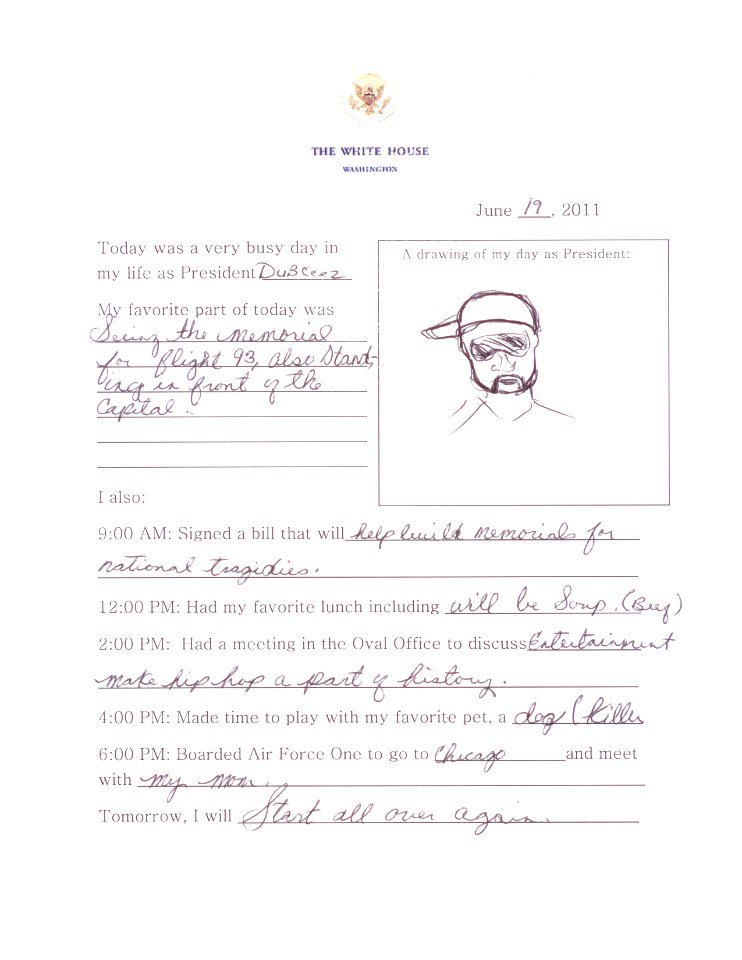 THE WHITE HOUSE
WASHINGTON
June 19, 2011
Today was a very busy day in
my life as President DuBCeez
My favorite part of today was
Seeing the memorial
for flight 93, also Stand-
ing in front of the
Capital.
A drawing of my day as President:
I also:
9:00 AM: Signed a bill that will help build memorials for
national tragidies.
12:00 PM: Had my favorite lunch including will be Soup. (Beef)
2:00 PM: Had a meeting in the Oval Office to discuss Entertainment
make hip hop a part of history.
4:00 PM: Made time to play with my favorite pet, a dog (Killer
6:00 PM: Boarded Air Force One to go to Chicago and meet
with my mom.
Tomorrow, I will Start all over again.